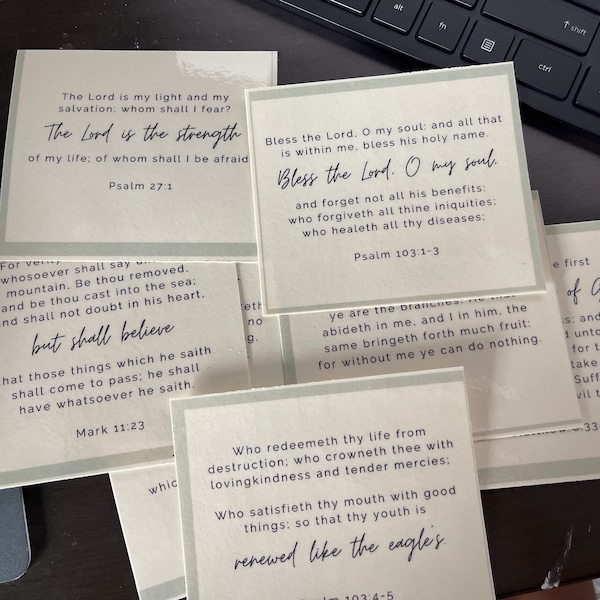 alt
fn
ctrl
shift
The Lord is my light and my
salvation; whom shall I fear?
The Lord is the strength
of my life; of whom shall I be afraid
Psalm 27:1
Bless the Lord, O my soul: and all that
is within me, bless his holy name.
Bless the Lord, O my soul,
and forget not all his benefits:
who forgiveth all thine iniquities;
who healeth all thy diseases;
Psalm 103:1-3
For verily
whosoever shall say
mountain, Be thou removed,
and be thou cast into the sea;
and shall not doubt in his heart,
but shall believe
that those things which he saith
shall come to pass; he shall
have whatsoever he saith.
Mark 11:23
ye are the branches: He that
abideth in me, and I in him, the
same bringeth forth much fruit:
for without me ye can do nothing.
first
of
and
for
take
Who redeemeth thy life from
destruction; who crowneth thee with
lovingkindness and tender mercies;
Who satisfieth thy mouth with good
things; so that thy youth is
renewed like the eagle's.
Psalm 103:4-5